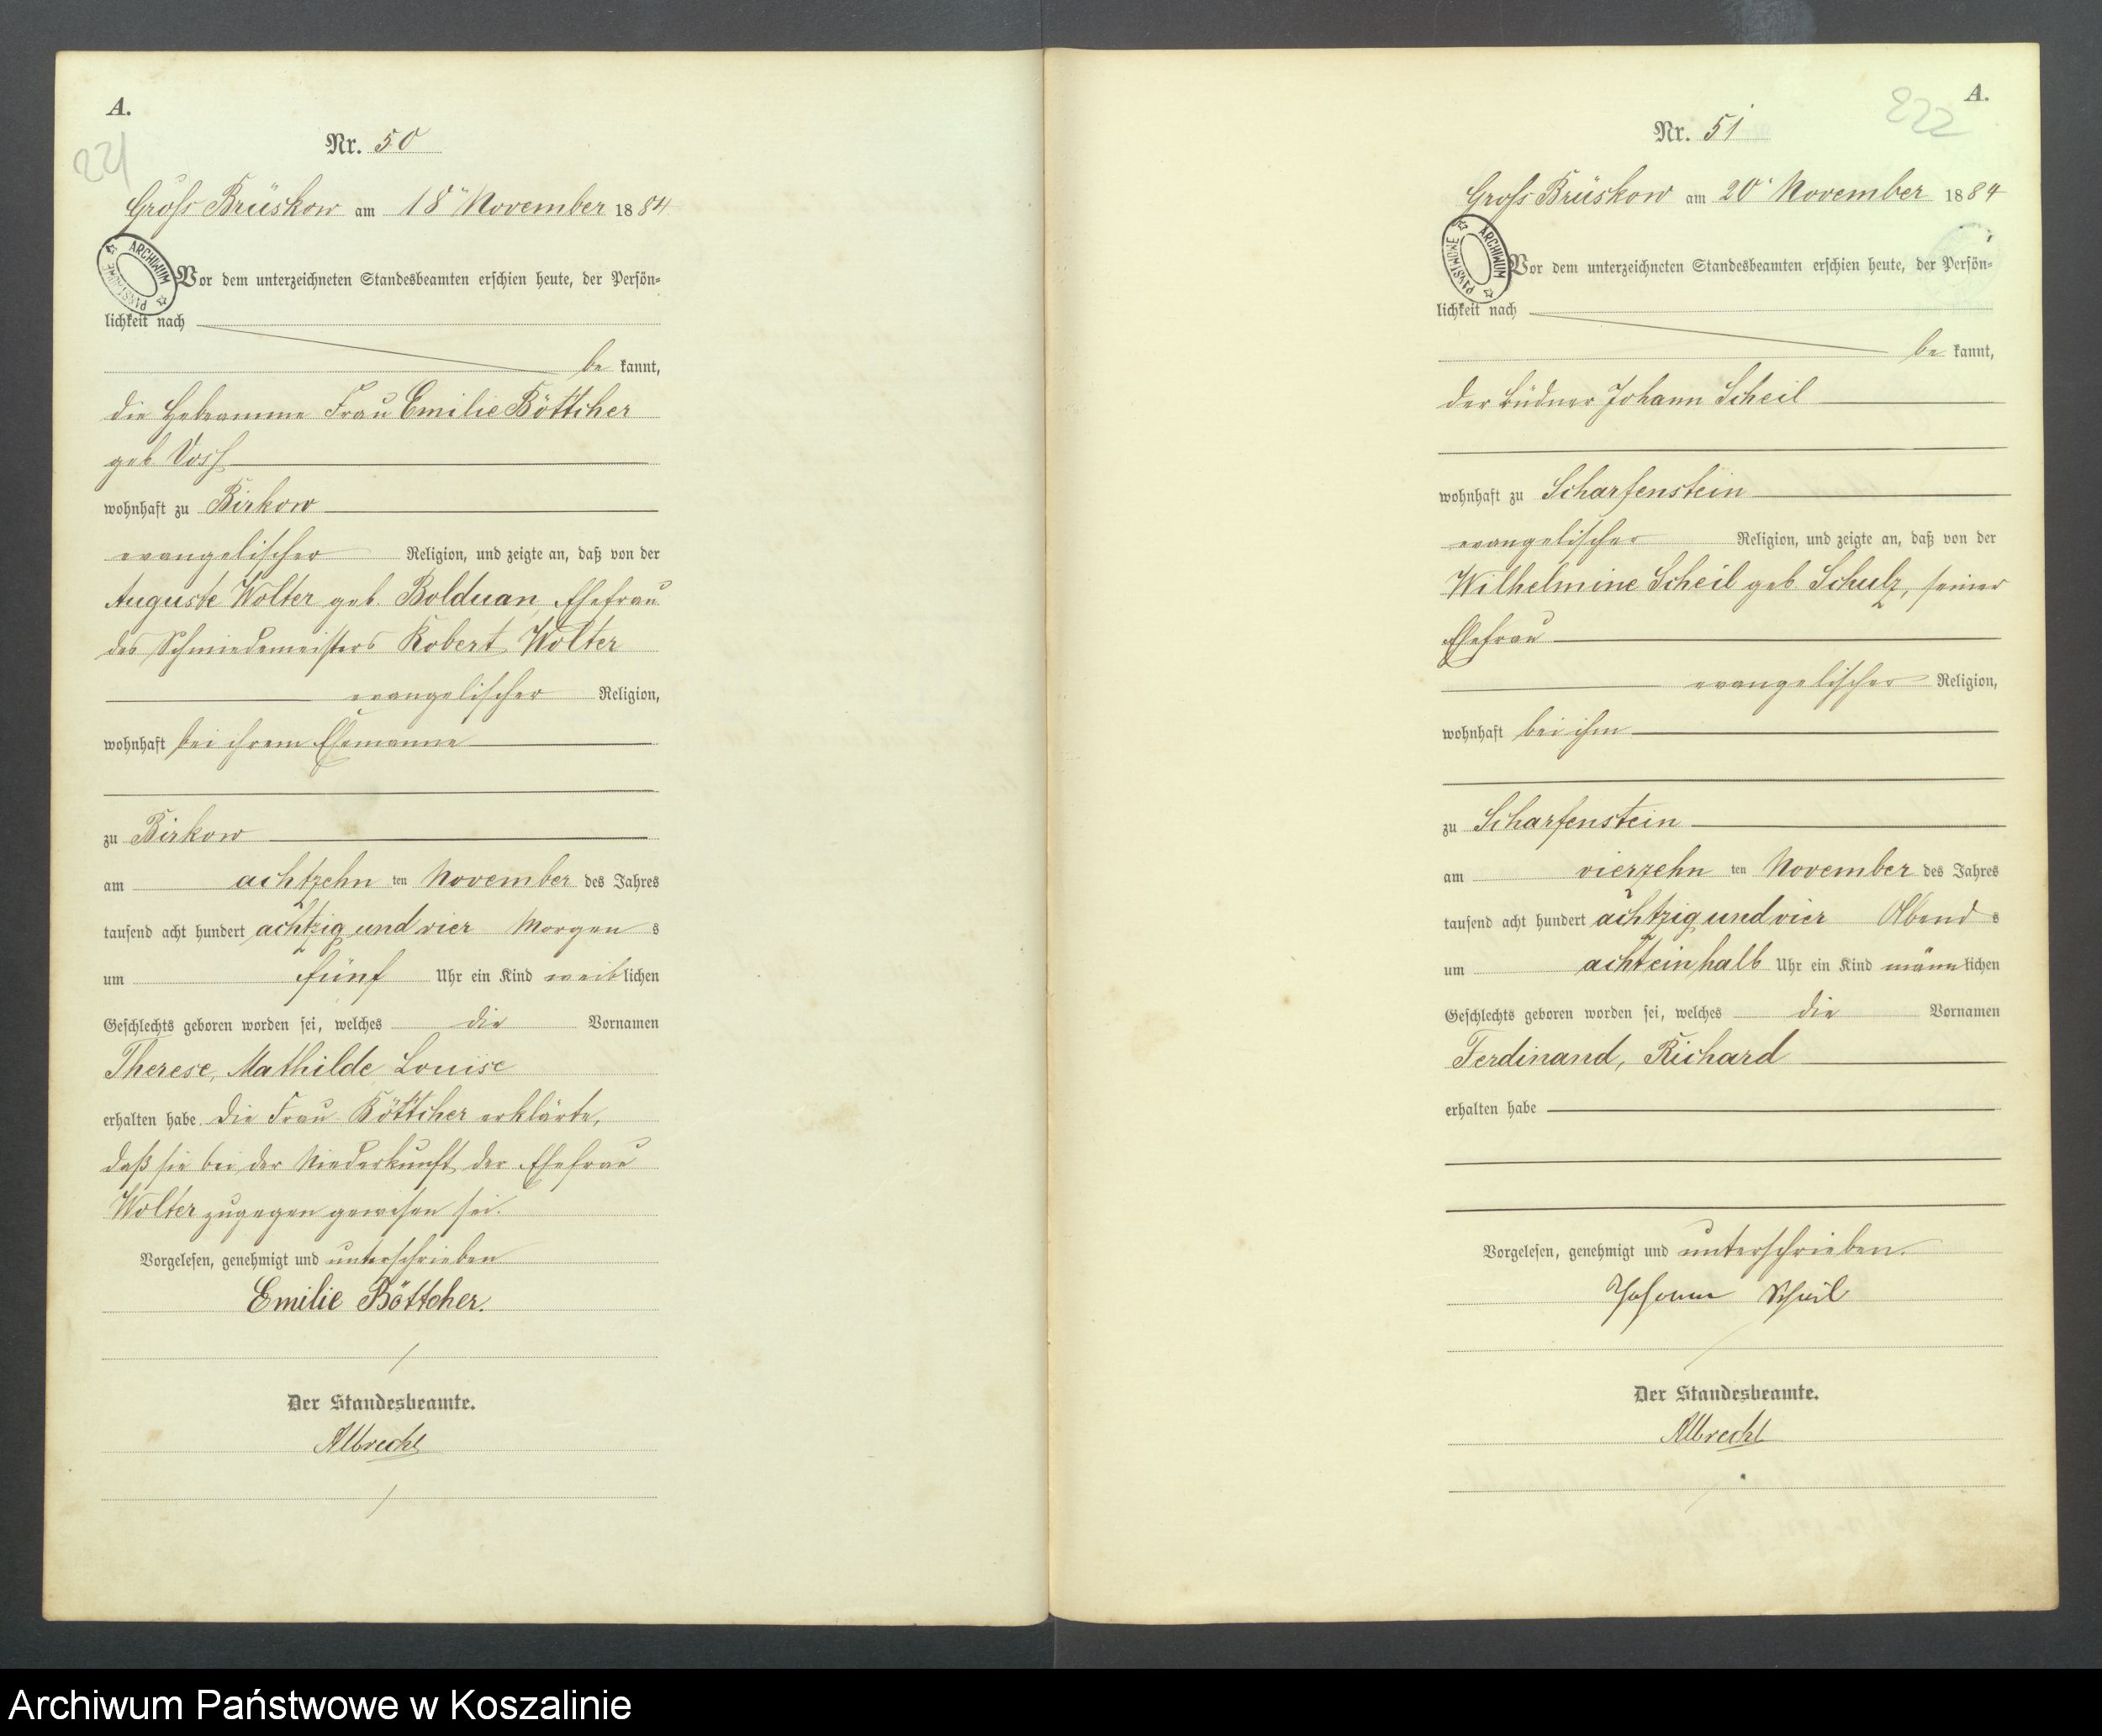 A.
221
Nr. 50
Groß Brüskow am 18ten November 1884
ARCHIWUM PAŃSTWOWE
Vor dem unterzeichneten Standesbeamten erschien heute, der Persön-
lichkeit nach
be kannt,
die Hebeamme Frau Emilie Böttcher
geb. Voß
wohnhaft zu Birkow
evangelischer Religion, und zeigte an, daß von der
Auguste Wolter geb. Bolduan, Ehefrau
des Schmiedemeisters Robert Wolter
evangelischer Religion,
wohnhaft bei ihrem Ehemanne
zu Birkow
am achtzehn ten November des Jahres
tausend acht hundert achtzig und vier Morgen s
um fünf Uhr ein Kind weib lichen
Geschlechts geboren worden sei, welches die Vornamen
Therese, Mathilde, Louise
erhalten habe. Die Frau Böttcher erklärte,
daß sie bei der Niederkunft der Ehefrau
Wolter zugegen gewesen sei.
Vorgelesen, genehmigt und unterschrieben
Emilie Böttcher.
Der Standesbeamte.
Albrecht
A.
222
Nr. 51
Groß Brüskow am 20. November 1884
ARCHIWUM PAŃSTWOWE
Vor dem unterzeichneten Standesbeamten erschien heute, der Persön-
lichkeit nach
be kannt,
der Büdner Johann Scheil
wohnhaft zu Scharfenstein
evangelischer Religion, und zeigte an, daß von der
Wilhelmine Scheil geb. Schulz, seiner
Ehefrau
evangelischer Religion,
wohnhaft bei ihm
zu Scharfenstein
am vierzehn ten November des Jahres
tausend acht hundert achtzig und vier Abend s
um achteinhalb Uhr ein Kind männ lichen
Geschlechts geboren worden sei, welches die Vornamen
Ferdinand, Richard
erhalten habe
Vorgelesen, genehmigt und unterschrieben.
Johann Scheil
Der Standesbeamte.
Albrecht
Archiwum Państwowe w Koszalinie